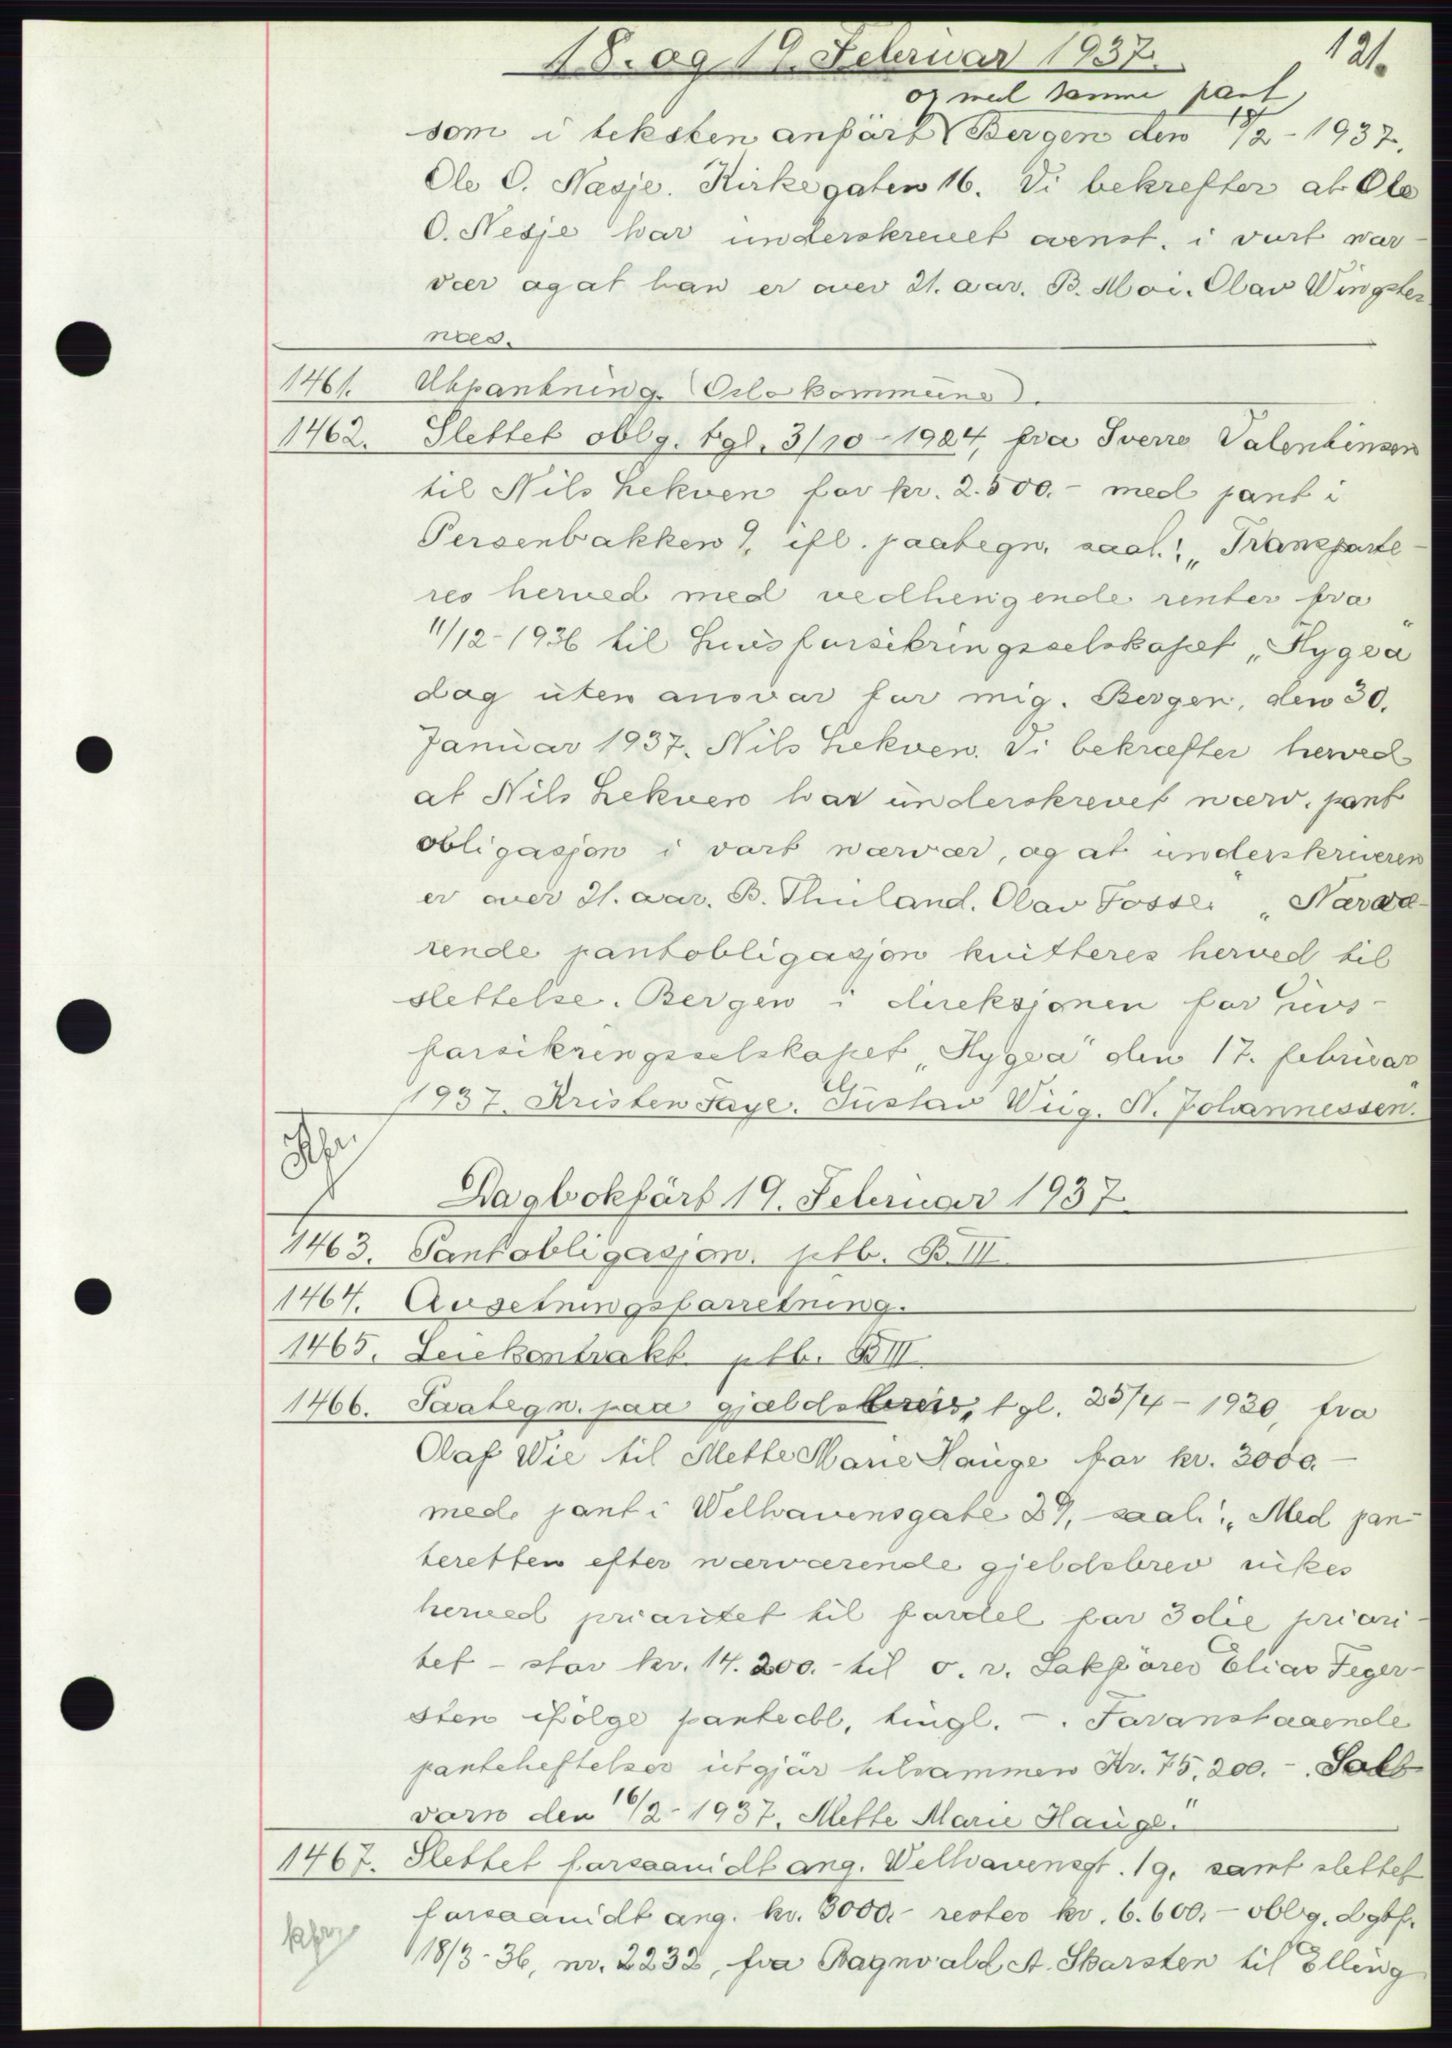 18. og 19. Februar 1937.
121.
og med samme pant
som i teksten anført Bergen den 18/2 - 1937.
Ole O. Næsje. Kirkegaten 16. Vi bekrefter at Ole
O. Nesje har underskrevet ovenst. i vort nær-
vær og at han er over 21. aar. B. Moi. Olav Wingster
næs.
1461. Utpantning. (Oslo kommune).
1462. Slettet oblg. tgl. 3/10 - 1924, fra Sverre Valentinsen
til Nils Lekven for kr. 2.500.- med pant i
Persenbakken 9, ifl. paategn. saal.: „Transporte-
res herved med vedhengende renter fra
11/12 - 1936 til Livsforsikringsselskapet „Hygea"
dog uten ansvar for mig. Bergen, den 30.
Januar 1937. Nils Lekven. Vi bekræfter herved
at Nils Lekven har underskrevet nærv. pant
obligasjon i vort nærvær, og at underskriveren
er over 21. aar. B. Thuland. Olav Fosse." „Nærvæ-
rende pantobligasjon kvitteres herved til
slettelse. Bergen i direksjonen for Livs-
forsikringsselskapet „Hygea" den 17. februar
1937. Kristen Faye. Gustav Wiig. N. Johannessen."
Dagbokført 19. Februar 1937.
1463. Pantobligasjon. ptb. B III
1464. Avsetningsforretning.
1465. Leiekontrakt. ptb. B III
1466. Paategn. paa gjældsbrev, tgl. 25/4 - 1930, fra
Olaf Wie til Mette Marie Hauge for kr. 3000.-
med pant i Welhavensgate 29, saal.: „Med pan-
teretten efter nærværende gjeldsbrev vikes
herved prioritet til fordel for 3die priori-
tet - stor kr. 14.200.- til o. r. Sakfører Elias Feger-
sten ifølge panteobl. tingl. -. Foranstaaende
panteheftelser utgjør tilsammen Kr. 75,200.-. Salt-
værn den 16/2 - 1937. Mette Marie Hauge."
1467. Slettet forsaavidt ang. Welhavensgt. 19, samt slettet
forsaavidt ang. kr. 3000.- rester kr. 6.600.- oblg. dgbf.
18/3 - 36, nr. 2232, fra Ragnvald A. Skarsten til Elling